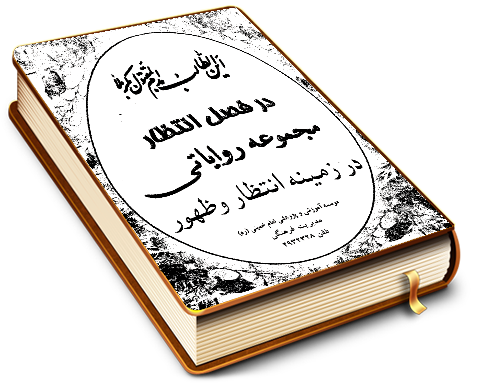 این الطالب بدم المقتول بکربلا
در فصل انتظار
مجموعه روایاتی
در زمینه انتظار و ظهور
موسسه آموزشی و پژوهشی امام خمینی (ره)
مدیریت فرهنگی
تلفن ۲۹۳۶۲۲۸